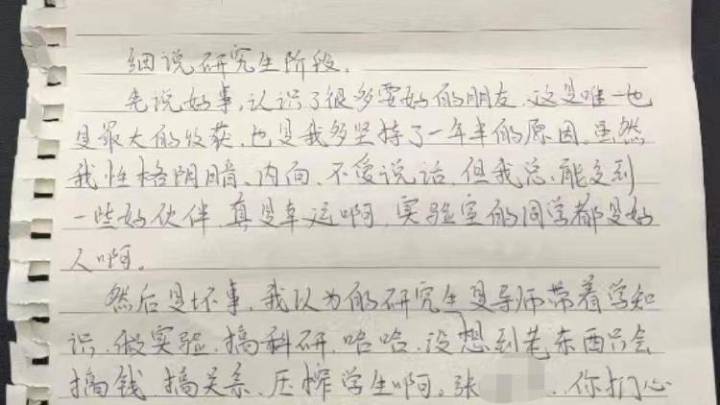 细说研究生阶段。
先说好事,认识了很多要好的朋友、这是唯一也
是最大的收获,也是我多坚持了一年半的原因。虽然
我性格阴暗、内向、不爱说话,但我总能交到
一些好伙伴,真是幸运啊,实验室的同学都是好
人啊。
然后是坏事,我以为的研究生是导师带着学知
识、做实验、搞科研,哈哈,没想到老东西只会
搞钱、搞关系、压榨学生啊。张 、你扪心